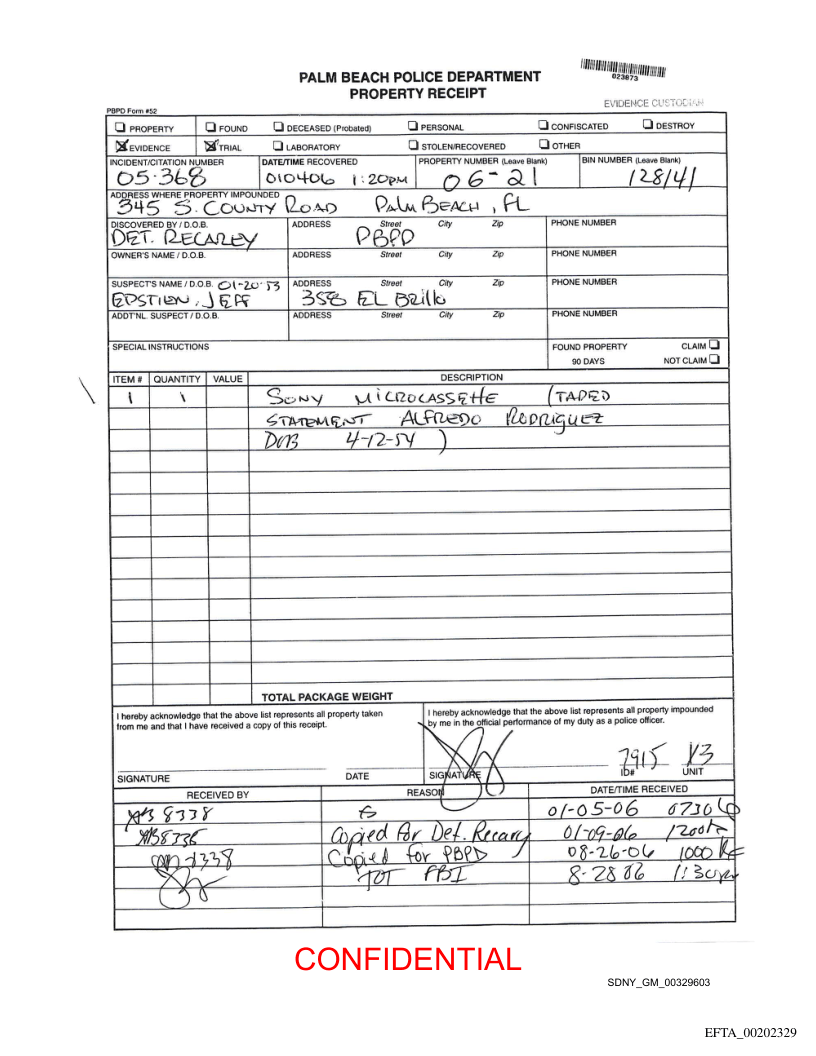 PALM BEACH POLICE DEPARTMENT
PROPERTY RECEIPT
023873
EVIDENCE CUSTODIAN
PBPD Form #52
PROPERTY FOUND DECEASED (Probated) PERSONAL CONFISCATED DESTROY
EVIDENCE TRIAL LABORATORY STOLEN/RECOVERED OTHER
INCIDENT/CITATION NUMBER DATE/TIME RECOVERED PROPERTY NUMBER (Leave Blank) BIN NUMBER (Leave Blank)
05-368 010406 1:20PM 06-21 128/41
ADDRESS WHERE PROPERTY IMPOUNDED
345 S. COUNTY ROAD PALM BEACH, FL
DISCOVERED BY / D.O.B. ADDRESS Street City Zip PHONE NUMBER
DET. RECAREY PBPD
OWNER'S NAME / D.O.B. ADDRESS Street City Zip PHONE NUMBER
SUSPECT'S NAME / D.O.B. 01-20-53 ADDRESS Street City Zip PHONE NUMBER
EPSTIEN, JEFF 358 EL Brillo
ADDT'NL. SUSPECT / D.O.B. ADDRESS Street City Zip PHONE NUMBER
SPECIAL INSTRUCTIONS FOUND PROPERTY CLAIM
90 DAYS NOT CLAIM
ITEM # QUANTITY VALUE DESCRIPTION
1 1 SONY MICROCASSETTE (TAPED
STATEMENT ALFREDO RODRIGUEZ
DOB 4-12-54 )
TOTAL PACKAGE WEIGHT
I hereby acknowledge that the above list represents all property taken
from me and that I have received a copy of this receipt.
I hereby acknowledge that the above list represents all property impounded
by me in the official performance of my duty as a police officer.
7915 V3
SIGNATURE DATE SIGNATURE ID# UNIT
RECEIVED BY REASON DATE/TIME RECEIVED
8338 01-05-06 0730
Copied For Det. Recarey 01-09-06 1200
Copied for PBPD 08-26-06 1000
TOT FBI 8-28 06 1:30pm
CONFIDENTIAL
SDNY_GM_00329603
EFTA_00202329